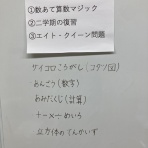 ①数あて算数マジック
②二学期の復習
③エイト・クイーン問題
サイコロころがし(コタツ型)
あんごう(数字)
あみだくじ(計算)
+-×÷めいろ
立方体のてんかいず